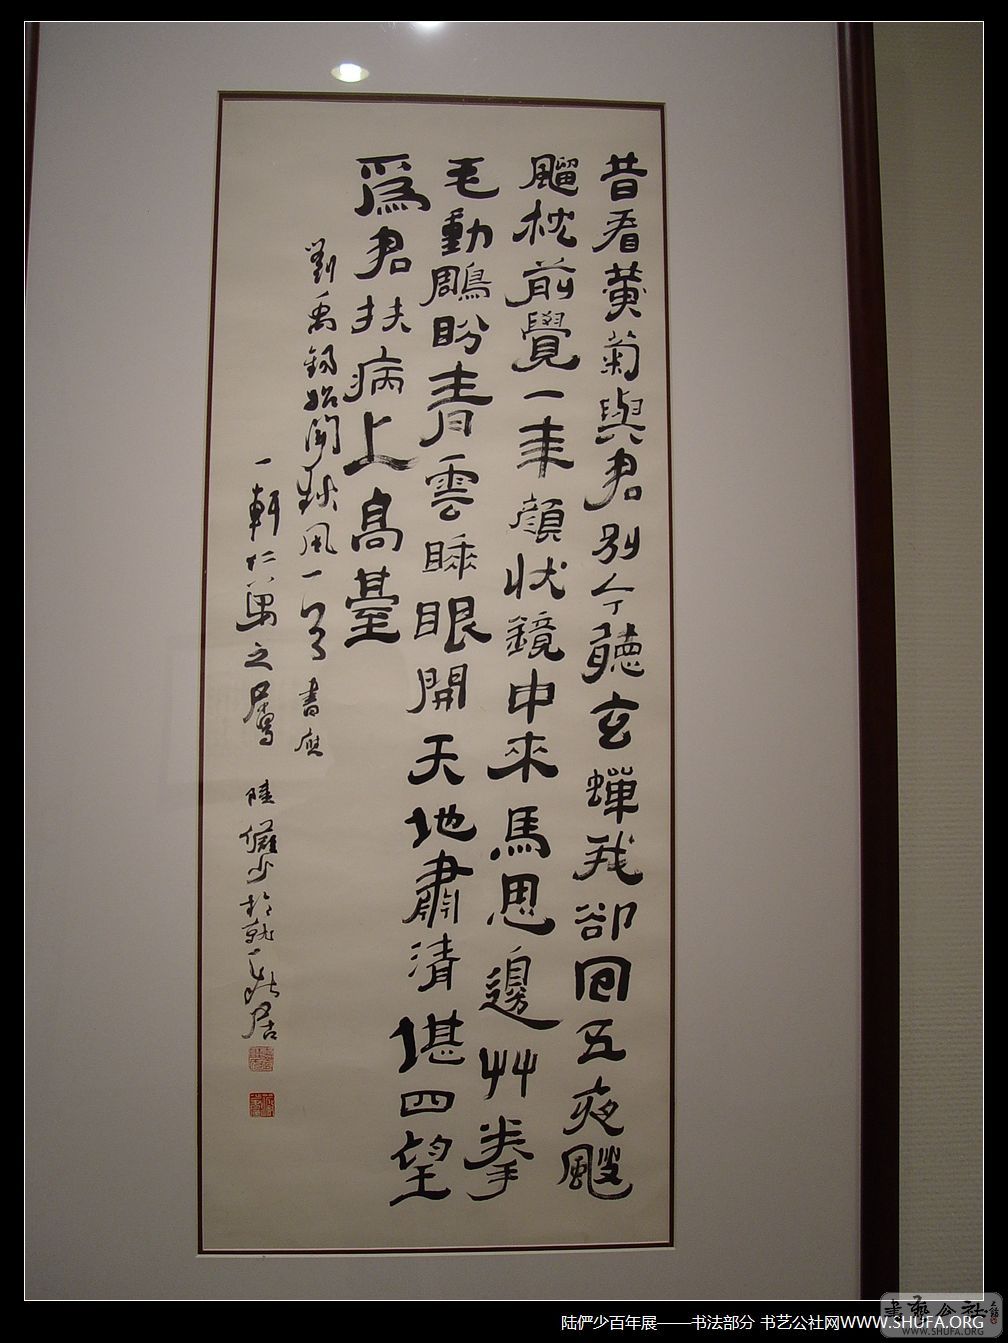 昔看黃菊與君別今聽玄蟬我卻囘五夜颼
飀枕前覺一年顏狀鏡中來馬思邊艸拳
毛動鵰盼青雲睡眼開天地肅清堪四望
爲君扶病上高臺
劉禹錫始聞秋風一首 書應
一軒仁之屬 陸儼少於就新居
書藝公社
WWW.SHUFA.ORG
陆俨少百年展——书法部分 书艺公社网WWW.SHUFA.ORG